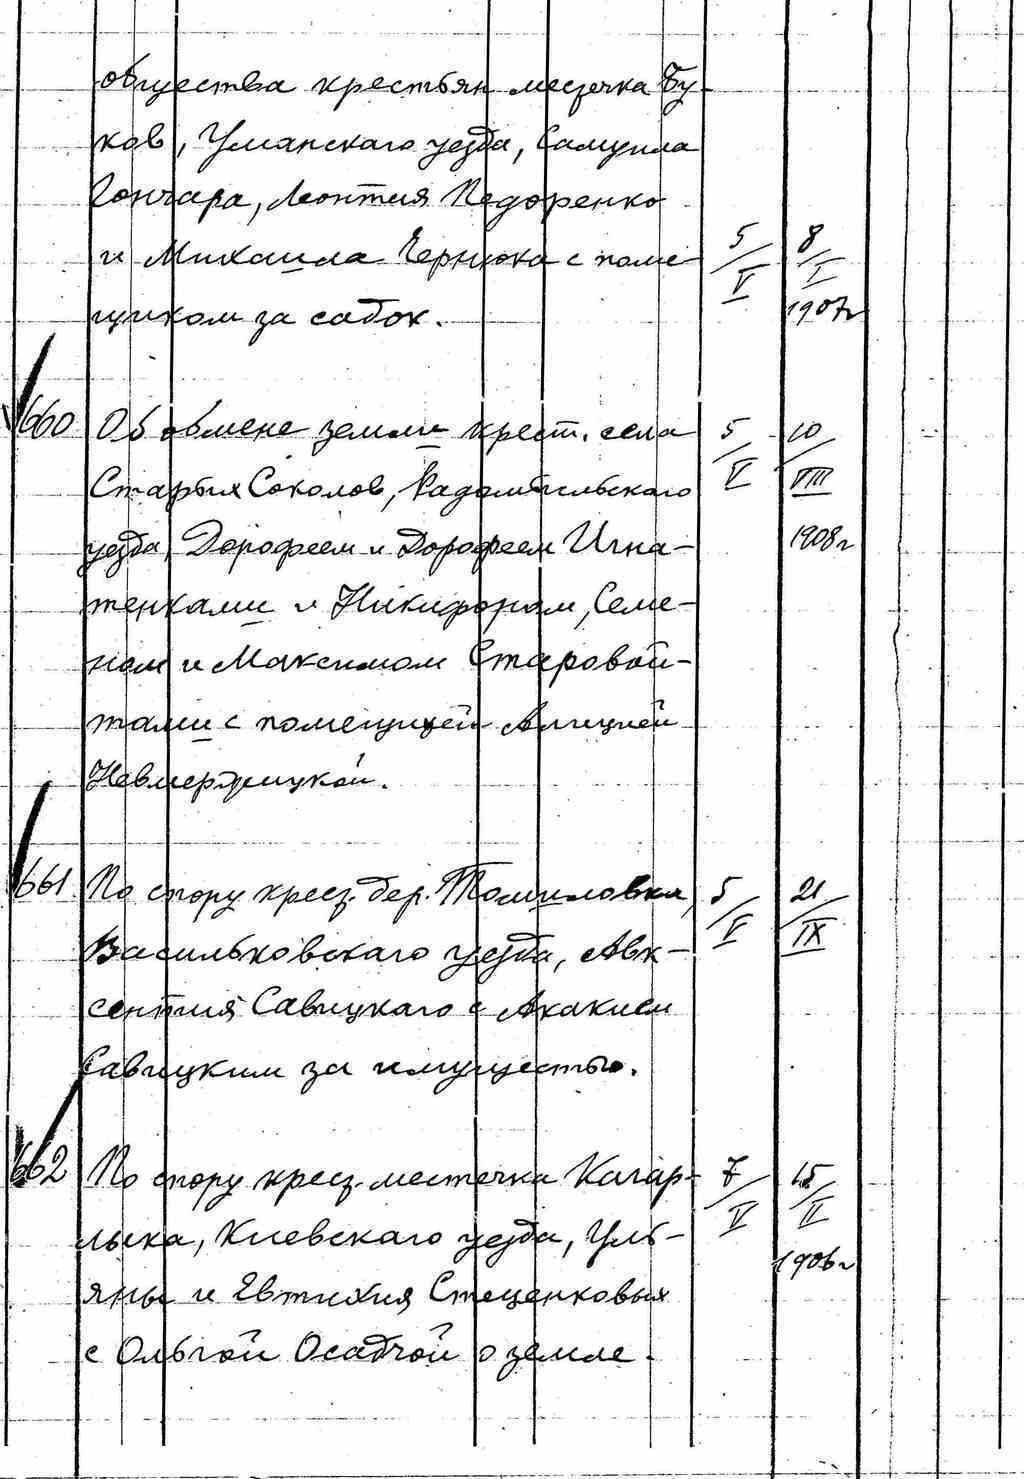 общества крестьян местечка Бу-
ков, Уманскаго уезда, Самуила
Гончара, Леонтия Педоренко
и Михаила Чернюка с поме- 5/V 8/I
щиком за садок. 1907г
660 Об обмене земли крест. села 5/V 10/VIII
Старых Соколов, Радомысльскаго
уезда, Дорофеем и Дорофеем Игна- 1908г
тенками и Никифором, Семе-
ном и Максимом Старовой-
тами с помещицей Алицией
Невмержицкой.
661 По спору крест. дер. Томиловка, 5/V 21/IX
Васильковскаго уезда, Авк-
сентия Савицкаго с Акакием
Савицким за имущество.
662 По спору крест. местечка Кагар- 7/V 15/II
лыка, Киевскаго уезда, Уль- 1906г
яны и Евтихия Стеценковых
с Ольгой Осадчой о земле.